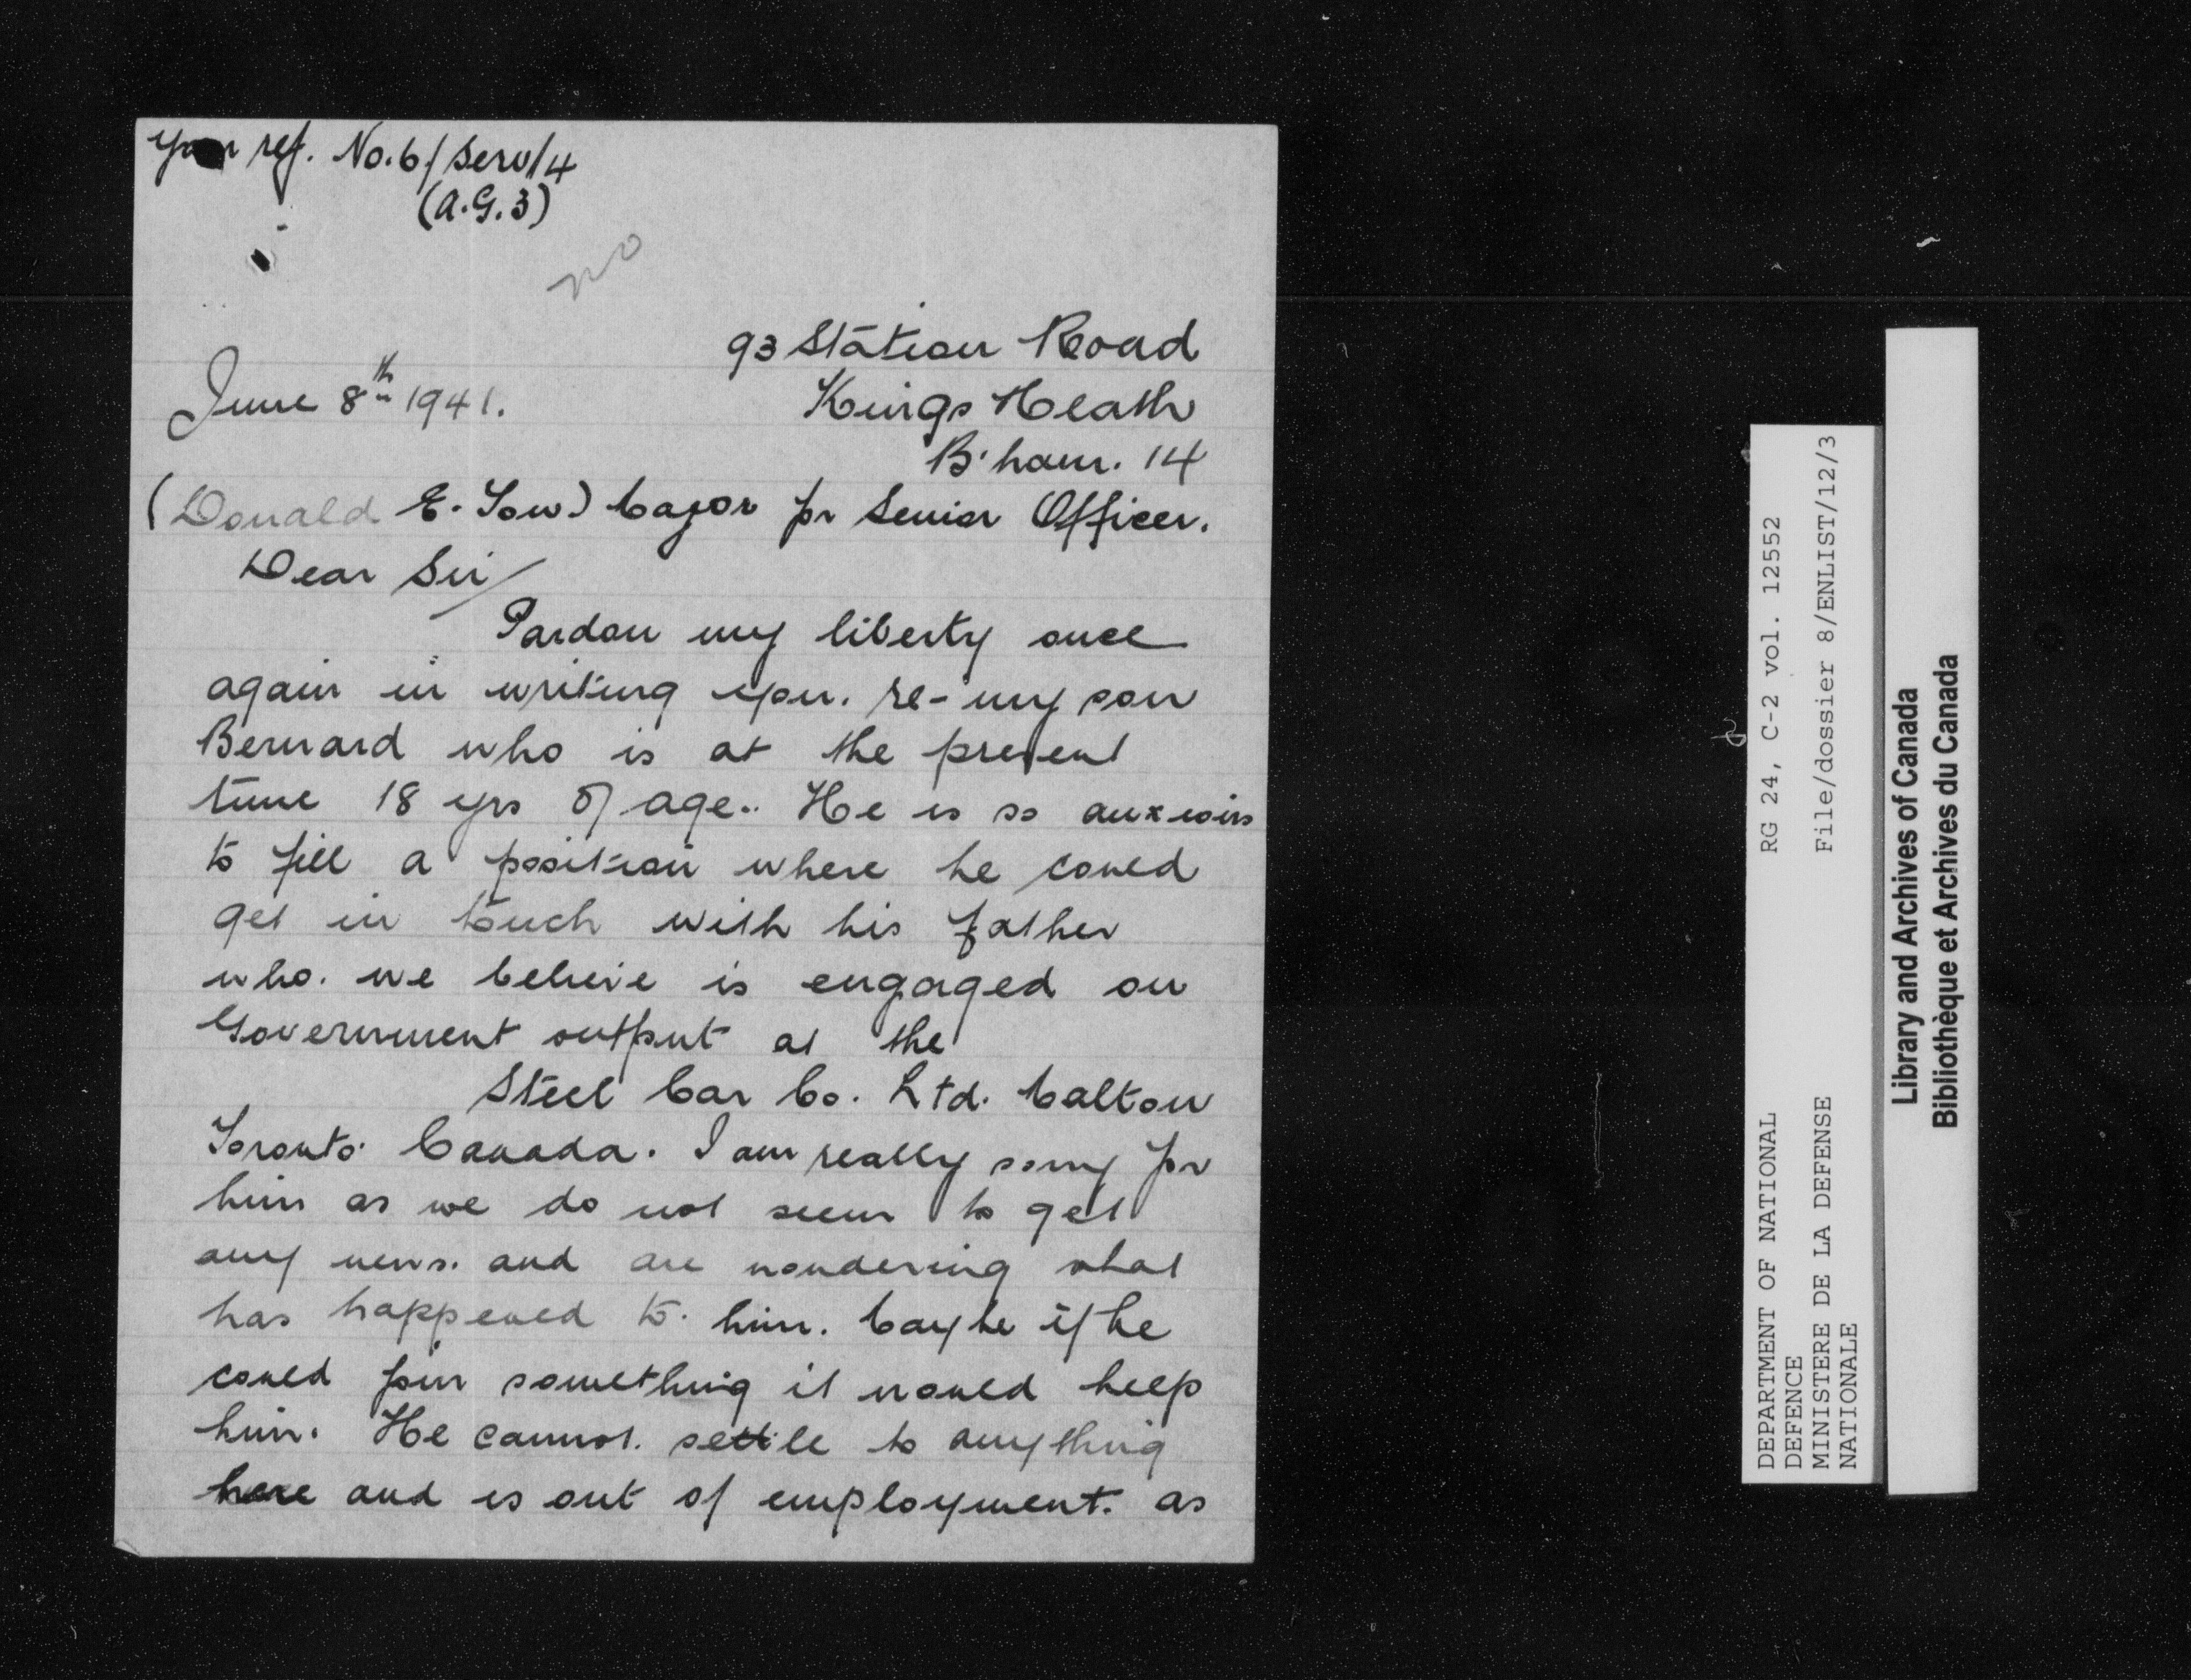 your ref. No. 6/Serv/4
(A.G.3)
no
93 Station Road
June 8th 1941.
Kings Heath
B'ham. 14
(Donald E. Tow) Major for Senior Officer.
Dear Sir/
Pardon my liberty once
again in writing you. re- my son
Bernard who is at the present
time 18 yrs of age.. He is so anxious
to fill a position where he could
get in touch with his father
who. we believe is engaged on
Government output at the
Steel Car Co. Ltd. Malton
Toronto. Canada. I am really sorry for
him as we do not seem to get
any news. and are wondering what
has happened to. him. Maybe if he
could join something it would help
him. He cannot. settle to anything
here and is out of employment. as
RG 24, C-2 vol. 12552
File/dossier 8/ENLIST/12/3
DEPARTMENT OF NATIONAL
DEFENCE
MINISTERE DE LA DEFENSE
NATIONALE
Library and Archives of Canada
Bibliothèque et Archives du Canada